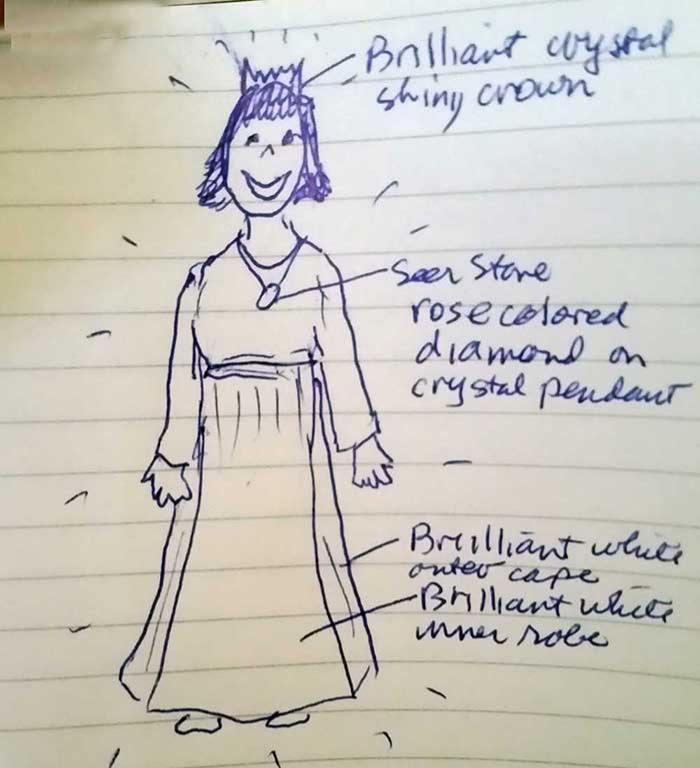 Brilliant crystal
shiny crown
Seer Stone
rose colored
diamond on
crystal pendant
Brilliant white
outer cape
Brilliant white
inner robe